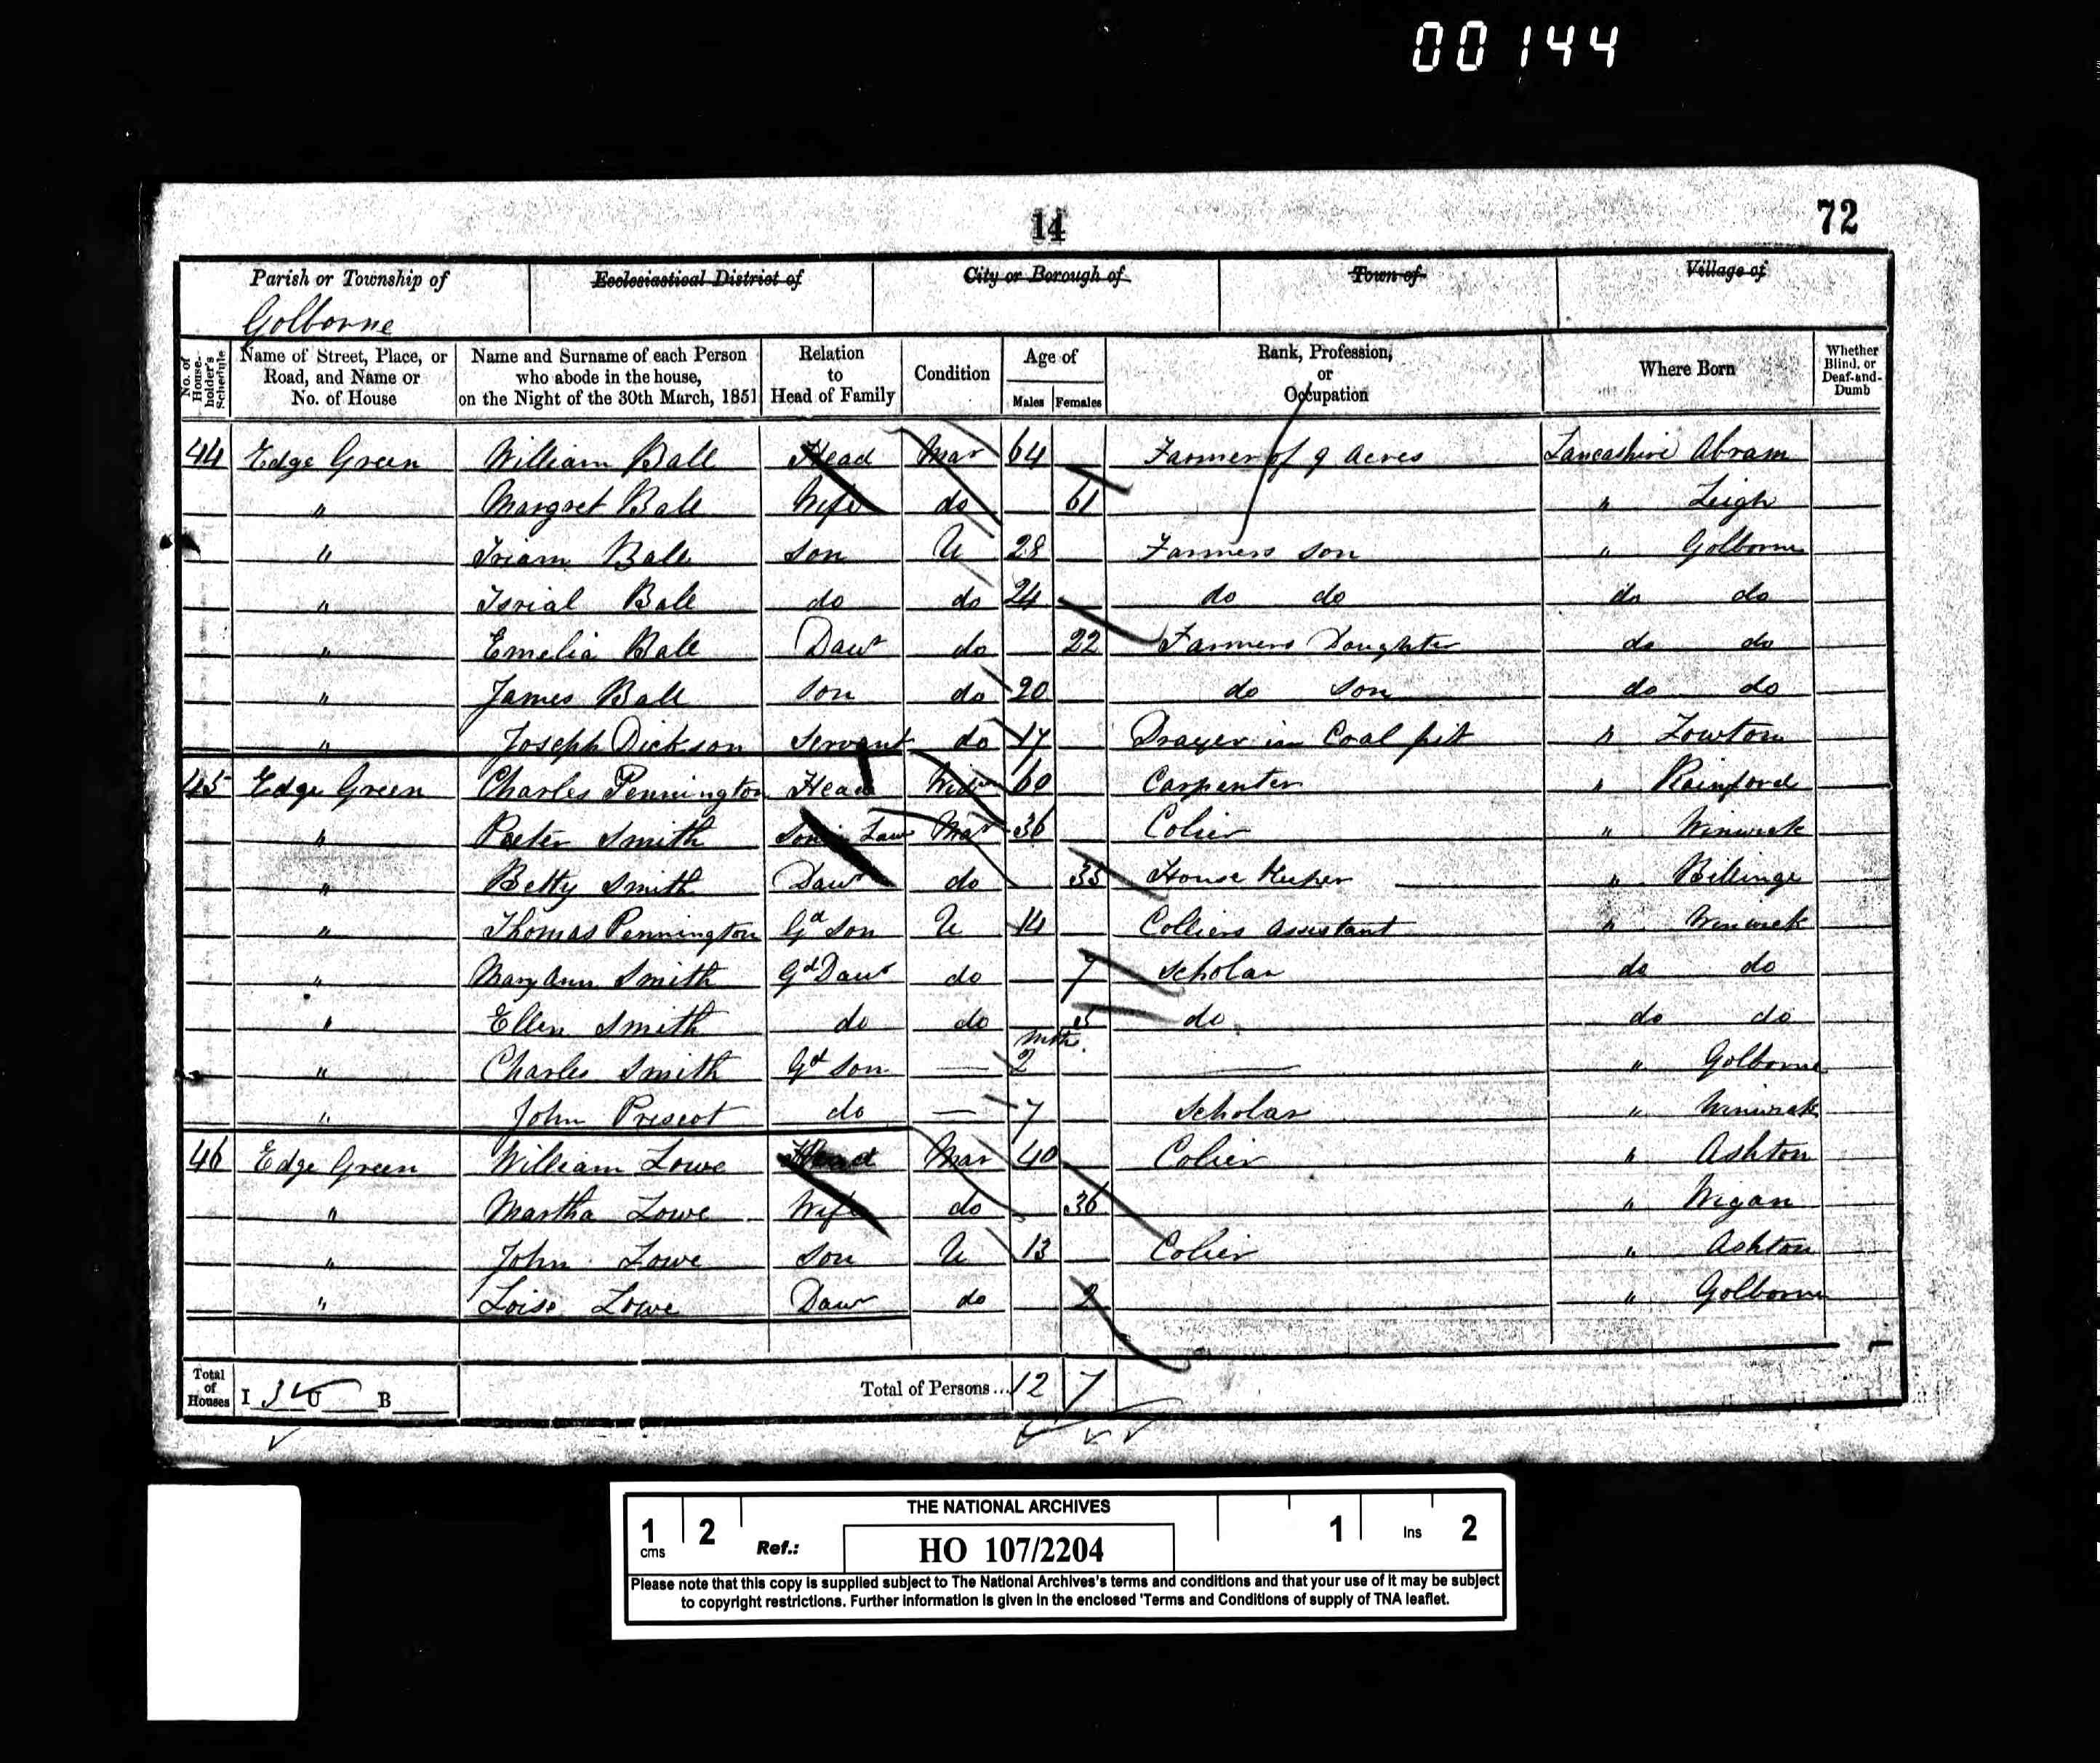 00144
14
72
Parish or Township of
Ecclesiastical District of
City or Borough of
Town of
Village of
Golborne
No. of House-holder's Schedule
Name of Street, Place, or Road, and Name or No. of House
Name and Surname of each Person who abode in the house, on the Night of the 30th March, 1851
Relation to Head of Family
Condition
Age of
Males
Females
Rank, Profession, or Occupation
Where Born
Whether Blind, or Deaf-and-Dumb
44 Edge Green William Ball Head Mar 64 Farmer of 9 Acres Lancashire Abram
" Margret Ball Wife do 61 " Leigh
" Ball Son U 28 Farmers Son " Golborne
" Isrial Ball do do 24 do do do do
" Emelia Ball Daur do 22 Farmers Daughter do do
" James Ball Son do 20 do Son do do
" Joseph Dickson Servant do 17 Drayer in Coal pit " Lowton
45 Edge Green Charles Pennington Head Widr 60 Carpenter " Rainford
" Peter Smith Son in Law Mar 36 Colier " Winwick
" Betty Smith Daur do 35 House Keeper " Billinge
" Thomas Pennington Gd Son U 14 Colliers Assistant " Winwick
" Mary Ann Smith Gd Daur do 7 Scholar do do
" Ellen Smith do do 5 do do do
" Charles Smith Gd Son — 2 Mths — " Golborne
" John Prescot do — 7 Scholar " Winwick
46 Edge Green William Lowe Head Mar 40 Colier " Ashton
" Martha Lowe Wife do 36 " Wigan
" John Lowe Son U 13 Colier " Ashton
" Loise Lowe Daur do 2 " Golborne
Total of Houses I 3 U B Total of Persons... 12 7
THE NATIONAL ARCHIVES
1 cms 2 Ref.: HO 107/2204 1 Ins 2
Please note that this copy is supplied subject to The National Archives's terms and conditions and that your use of it may be subject
to copyright restrictions. Further information is given in the enclosed 'Terms and Conditions of supply of TNA leaflet.